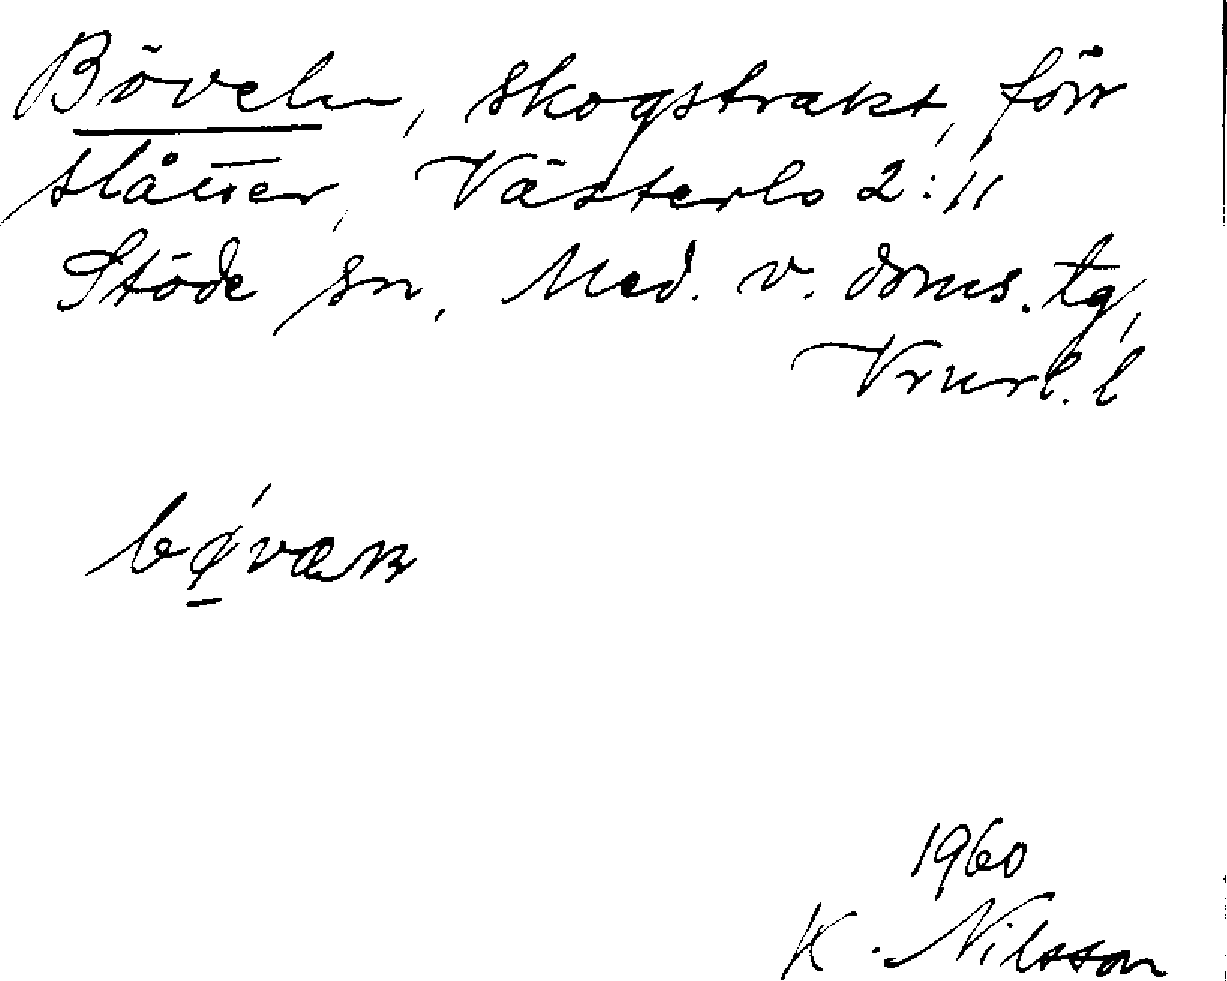 Böveln, skogstrakt, förr
slåtter, Västerlo 2:11
Stöde sn, Med. v. doms. tg,
Vnrl. l
1960
K. Nilsson